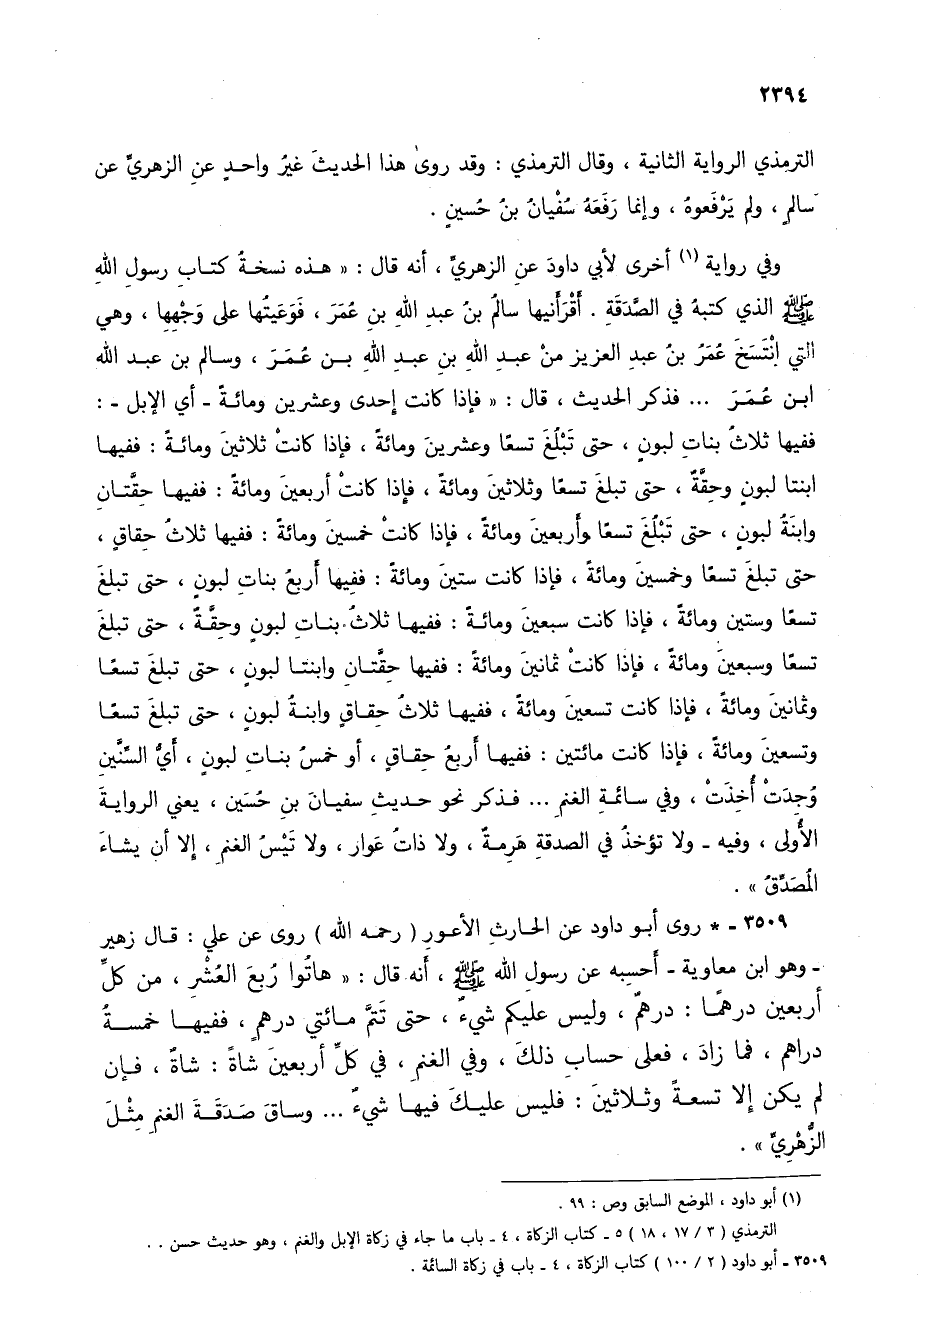 ٢٣٩٤
الترمذي الرواية الثانية ، وقال الترمذي : وقد روىٰ هذا الحديثَ غيرُ واحدٍ عنِ الزهريِّ عن
سالمٍ ، ولم يَرْفَعوهُ ، وإنما رَفَعَهُ سُفْيانُ بنُ حُسينٍ .
وفي رواية (١) أخرى لأبي داودَ عن الزهريِّ ، أنه قال : « هـذه نسخـةُ كتـابِ رسولِ اللهِ
ﷺ الذي كتبهُ في الصَّدَقَةِ . أَقْرَأَنيها سالمُ بنُ عبدِ اللهِ بنِ عُمَرَ ، فَوَعَيتُها على وَجْهِها ، وهي
التي اِنْتَسَخَ عُمَرُ بنُ عبدِ العزيزِ منْ عبـدِ اللهِ بنِ عبـدِ اللهِ بـن عُـمَـرَ ، وسـالمِ بن عبـد الله
ابـن عُـمَـرَ ... فـذكر الحديثَ ، قال : « فإذا كانت إحدى وعشرين ومـائـةً ـ أي الإبل ـ :
ففيها ثلاثُ بناتِ لبونٍ ، حتى تَبْلُغَ تسعًا وعشرينَ ومائةً ، فإذا كانتْ ثلاثينَ ومائـةً : ففيهـا
ابنتا لبونٍ وحِقَّةٌ ، حتى تبلغَ تسعًا وثلاثينَ ومائةً ، فإذا كانتْ أربعينَ ومائةً : ففيهـا حِقَّتـان
وابنَةُ لبونٍ ، حتى تَبْلُغَ تسعًا وأربعينَ ومائةً ، فإذا كانتْ خمسينَ ومائةً : ففيها ثلاثُ حِقاقٍ ،
حتى تبلغَ تسعًا وخمسينَ ومائةً ، فإذا كانت ستينَ ومائةً : ففيها أربعُ بناتِ لبونٍ ، حتى تبلغَ
تسعًا وستين ومائةً ، فإذا كانت سبعينَ ومائـةً : ففيهـا ثلاثُ بنـاتِ لبونٍ وحِقَّـةٌ ، حتى تبلغَ
تسعًا وسبعينَ ومائةً ، فإذا كانتْ ثمانينَ ومائةً : ففيها حِقَّتـان وابنتـا لبونٍ ، حتى تبلغَ تسعًـا
وثمانينَ ومائةً ، فإذا كانت تسعينَ ومائةً ، ففيهـا ثلاثُ حِقـاقٍ وابنـةُ لبونٍ ، حتى تبلغَ تسعًـا
وتسعينَ ومائةً ، فإذا كانت مائتين : ففيهـا أربعُ حِقـاقٍ ، أو خمسُ بنـاتِ لبونٍ ، أيُّ السِّنَّينِ
وُجدَتْ أُخِذَتْ ، وفي سائمةِ الغنمِ ... فـذكر نحوَ حـديثِ سفيـانَ بنِ حُسَين ، يعني الروايـةَ
الأُولى ، وفيه ـ ولا تؤخذُ في الصدقةِ هَرِمـةٌ ، ولا ذاتُ عَوارٍ ، ولا تَيْسُ الغنمِ ، إلا أن يشـاءَ
المُصَدِّقُ » .
٣٥٠٩ ـ * روى أبـو داودَ عن الحارثِ الأعـورِ ( رحمـه الله ) روى عن علي : قـال زهير
ـ وهو ابن معاوية ـ أحسبه عن رسولِ اللهِ ﷺ ، أنه قال : « هاتُوا رُبعَ العُشْرِ ، من كلِّ
أربعين درهمًـا : درهمٌ ، وليس عليكم شيءٌ ، حتى تَتمَّ مـائتي درهمٍ ، ففيهـا خمسـةُ
دراهم ، فما زادَ ، فعلى حسابِ ذلكَ ، وفي الغنمِ ، في كلِّ أربعينَ شاةً : شاةٌ ، فـإن
لم يكن إلا تسعـةً وثلاثينَ : فليس عليـكَ فيهـا شيءٌ ... وسـاقَ صَـدَقَـةَ الغنمِ مِثْـلَ
الزُّهْريِّ » .
(١) أبو داود ، الموضع السابق وص : ٩٩ .
الترمذي ( ٣ / ١٧ ، ١٨ ) ٥ ـ كتاب الزكاة ، ٤ ـ باب ما جاء في زكاة الإبل والغنم ، وهو حديث حسن . .
٣٥٠٩ ـ أبو داود ( ٢ / ١٠٠ ) كتاب الزكاة ، ٤ ـ باب في زكاة السائمة .